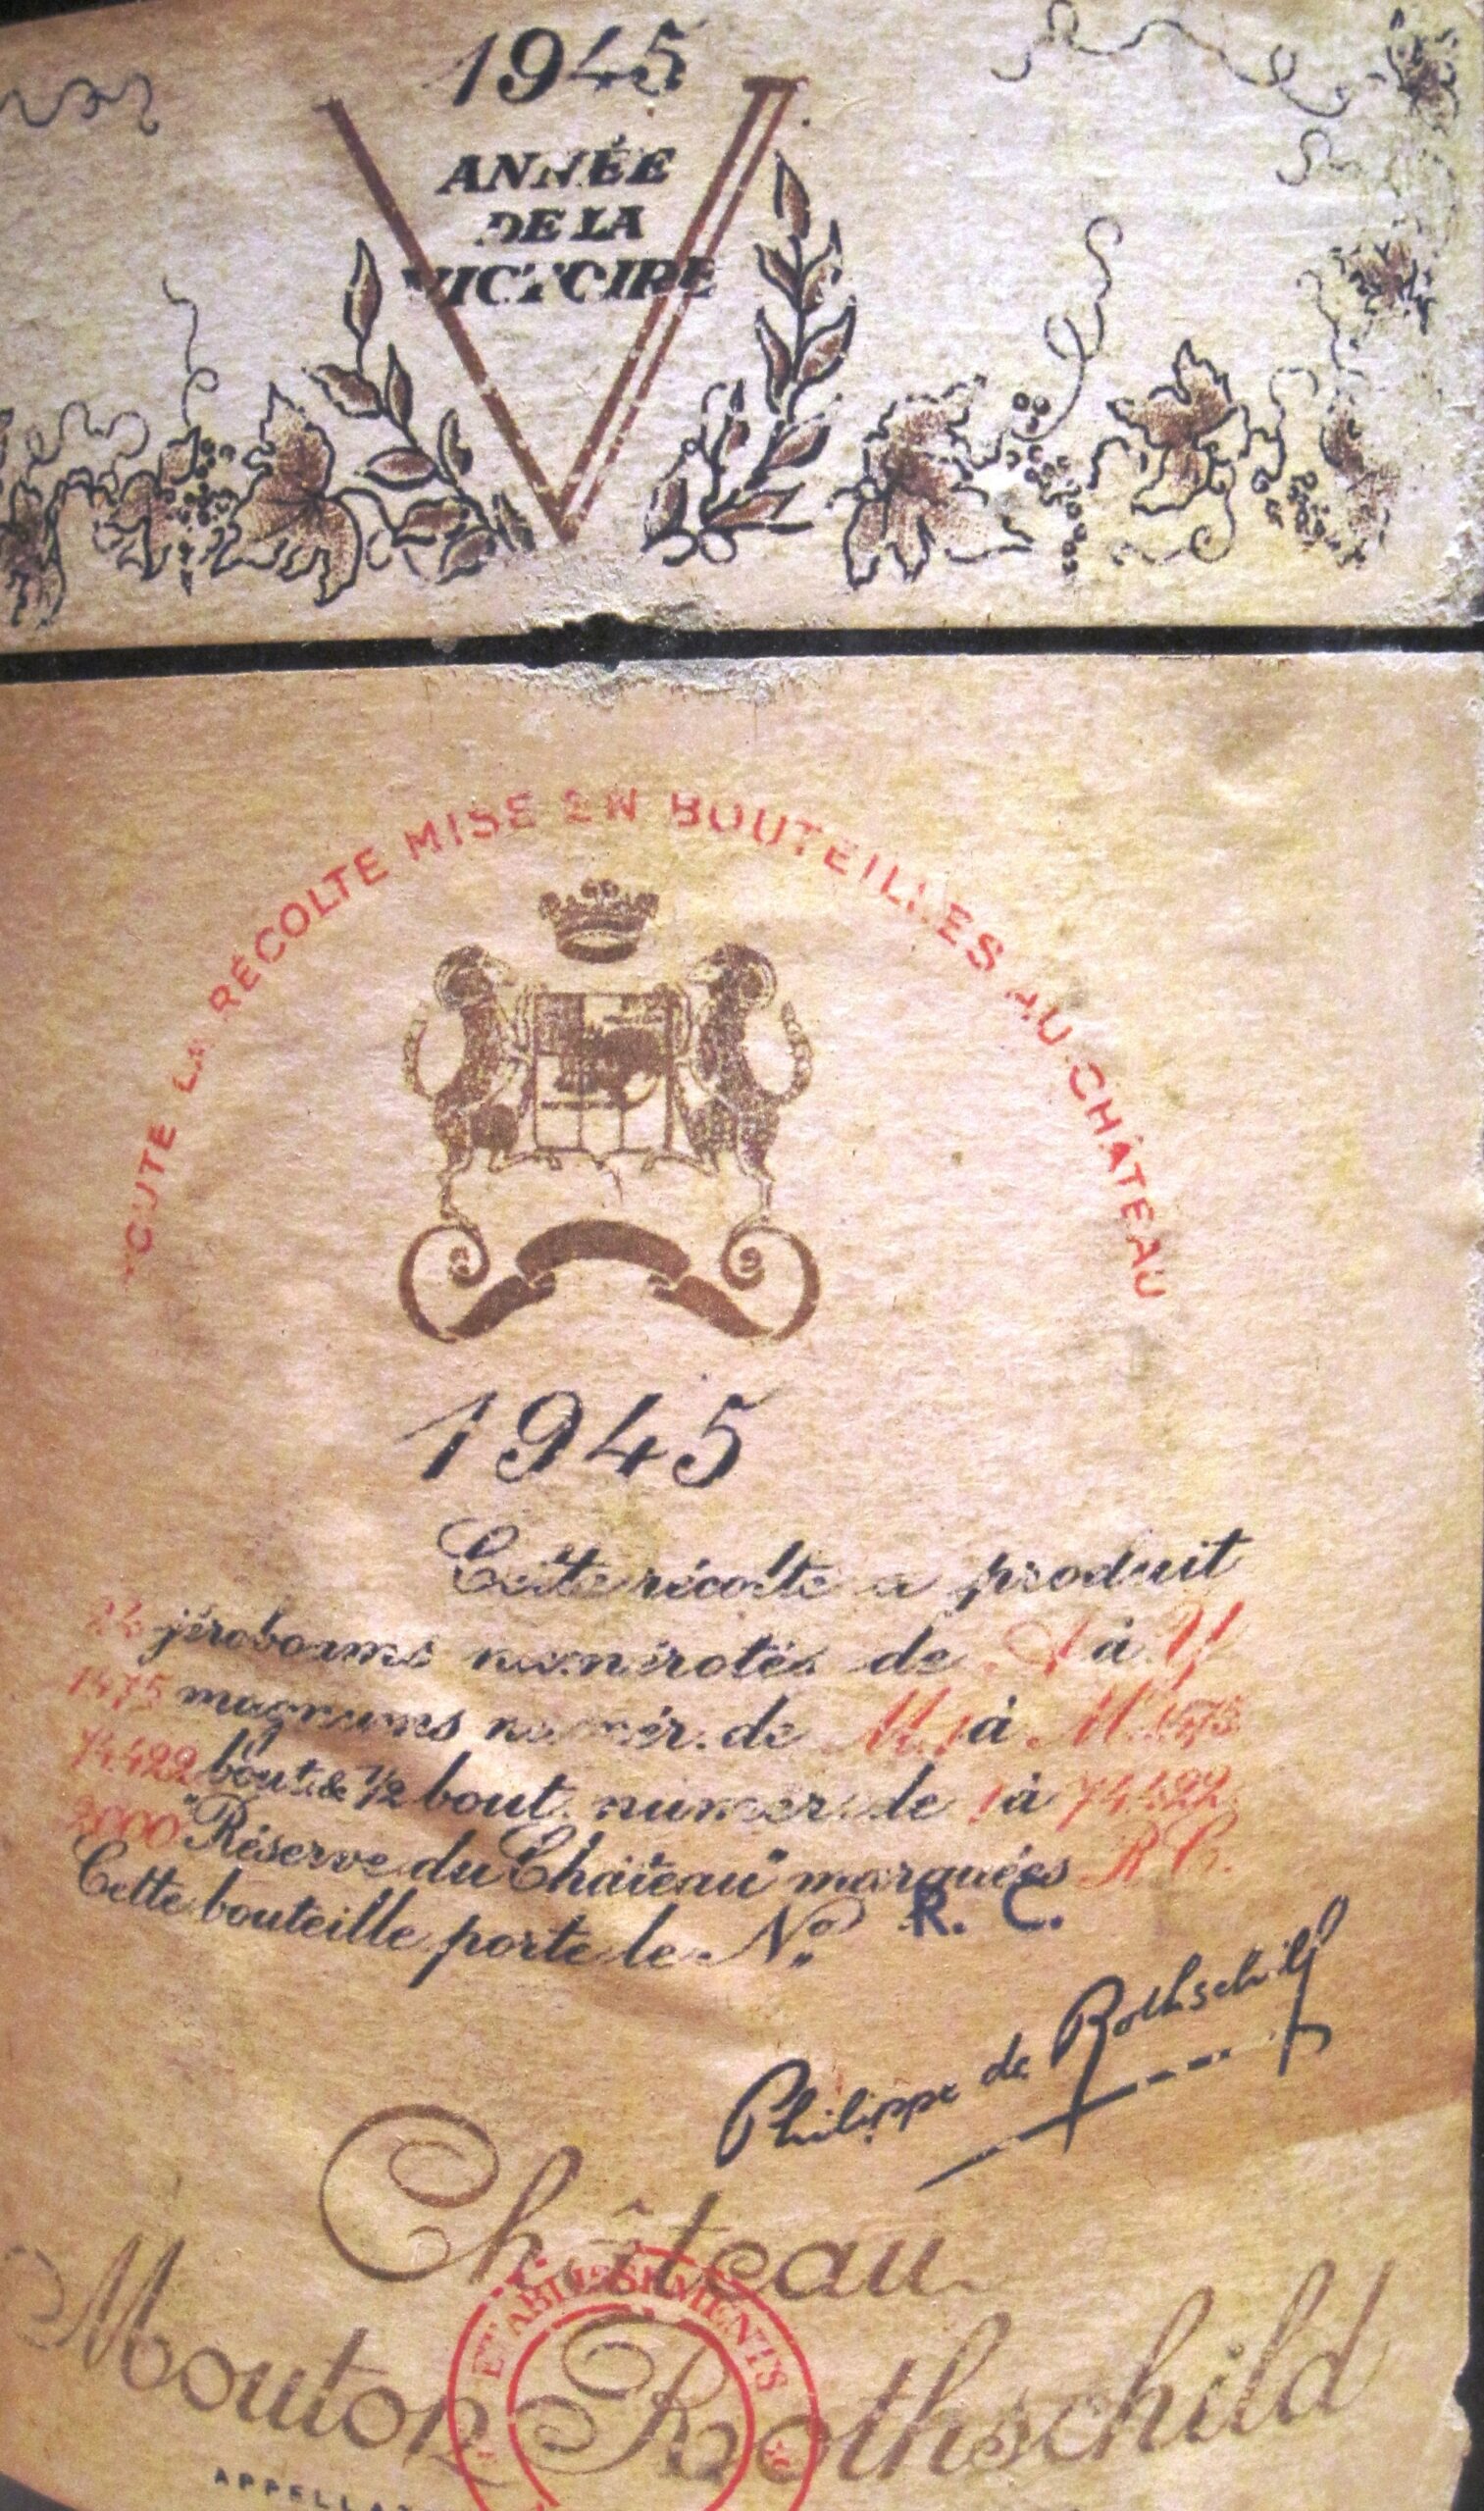 1945
ANNÉE
DE LA
VICTOIRE
TOUTE LA RÉCOLTE MISE EN BOUTEILLES AU CHÂTEAU
1945
Cette récolte a produit
24 jéroboams numérotés de A à Y
1475 magnums numér. de M. 1 à M. 1475
74.422 bout. & 1/2 bout. numér. de 1 à 74.422
2000 "Réserve du Château" marquées R.C.
Cette bouteille porte le No. R. C.
Philippe de Rothschild
Château
Mouton Rothschild
ETABLISSEMENTS